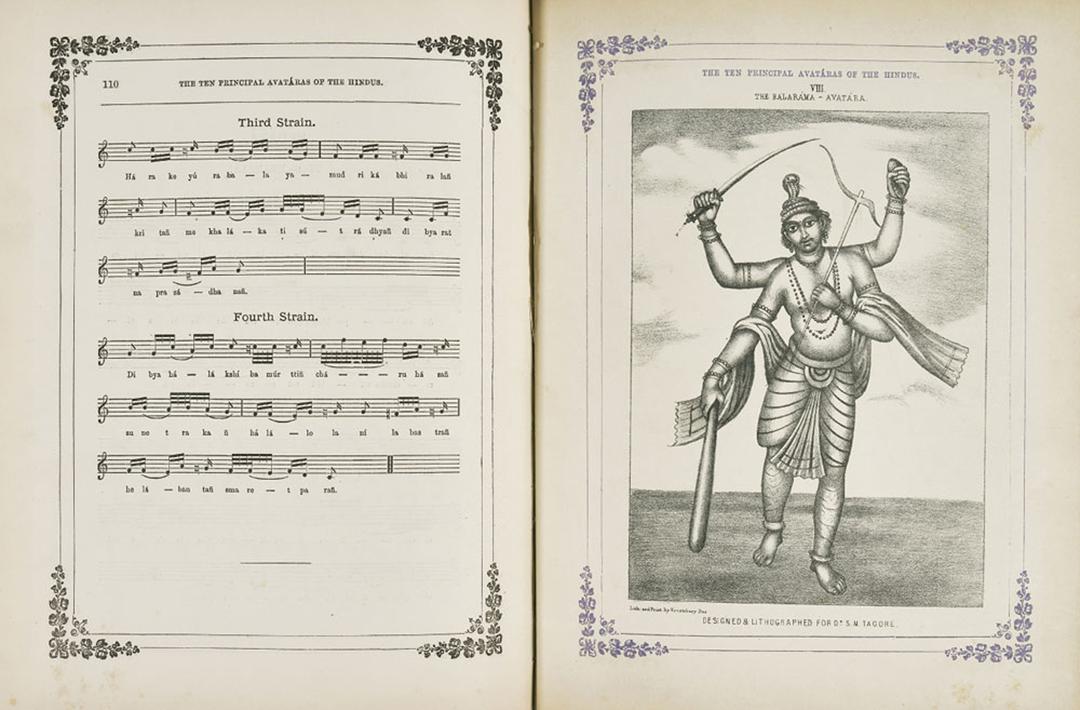 110
THE TEN PRINCIPAL AVATÁRAS OF THE HINDUS.
Third Strain.
Há ra ke yú ra ba — la ya — mud ri ká bhi ra lañ
kri tañ me kha lá — ka ti sú — t rá dhyañ di bya rat
na pra sá — dha nañ.
Fourth Strain.
Di bya bá — lá kshí ba múr ttiñ chá — — — ru há sañ
su ne t ra ka ñ há lá — lo la ní la bas trañ
he lá — ban tañ sma re — t pa rañ.
THE TEN PRINCIPAL AVATÁRAS OF THE HINDUS.
VIII.
THE BALARÁMA – AVATÁRA.
Lith: and Print. by
DESIGNED & LITHOGRAPHED FOR Dr. S. M. TAGORE.